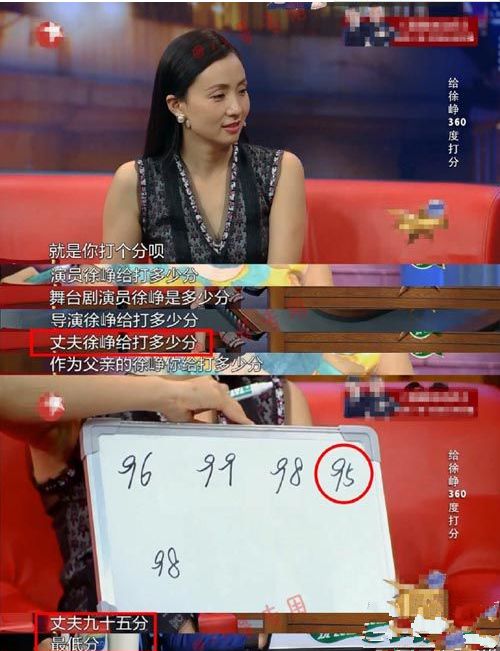 给徐峥360度打分
就是你打个分呗
演员徐峥给打多少分
舞台剧演员徐峥是多少分
导演徐峥给打多少分
丈夫徐峥给打多少分
作为父亲的徐峥你给打多少分
96 99 98 95
98
给徐峥360度打分
丈夫九十五分
最低分